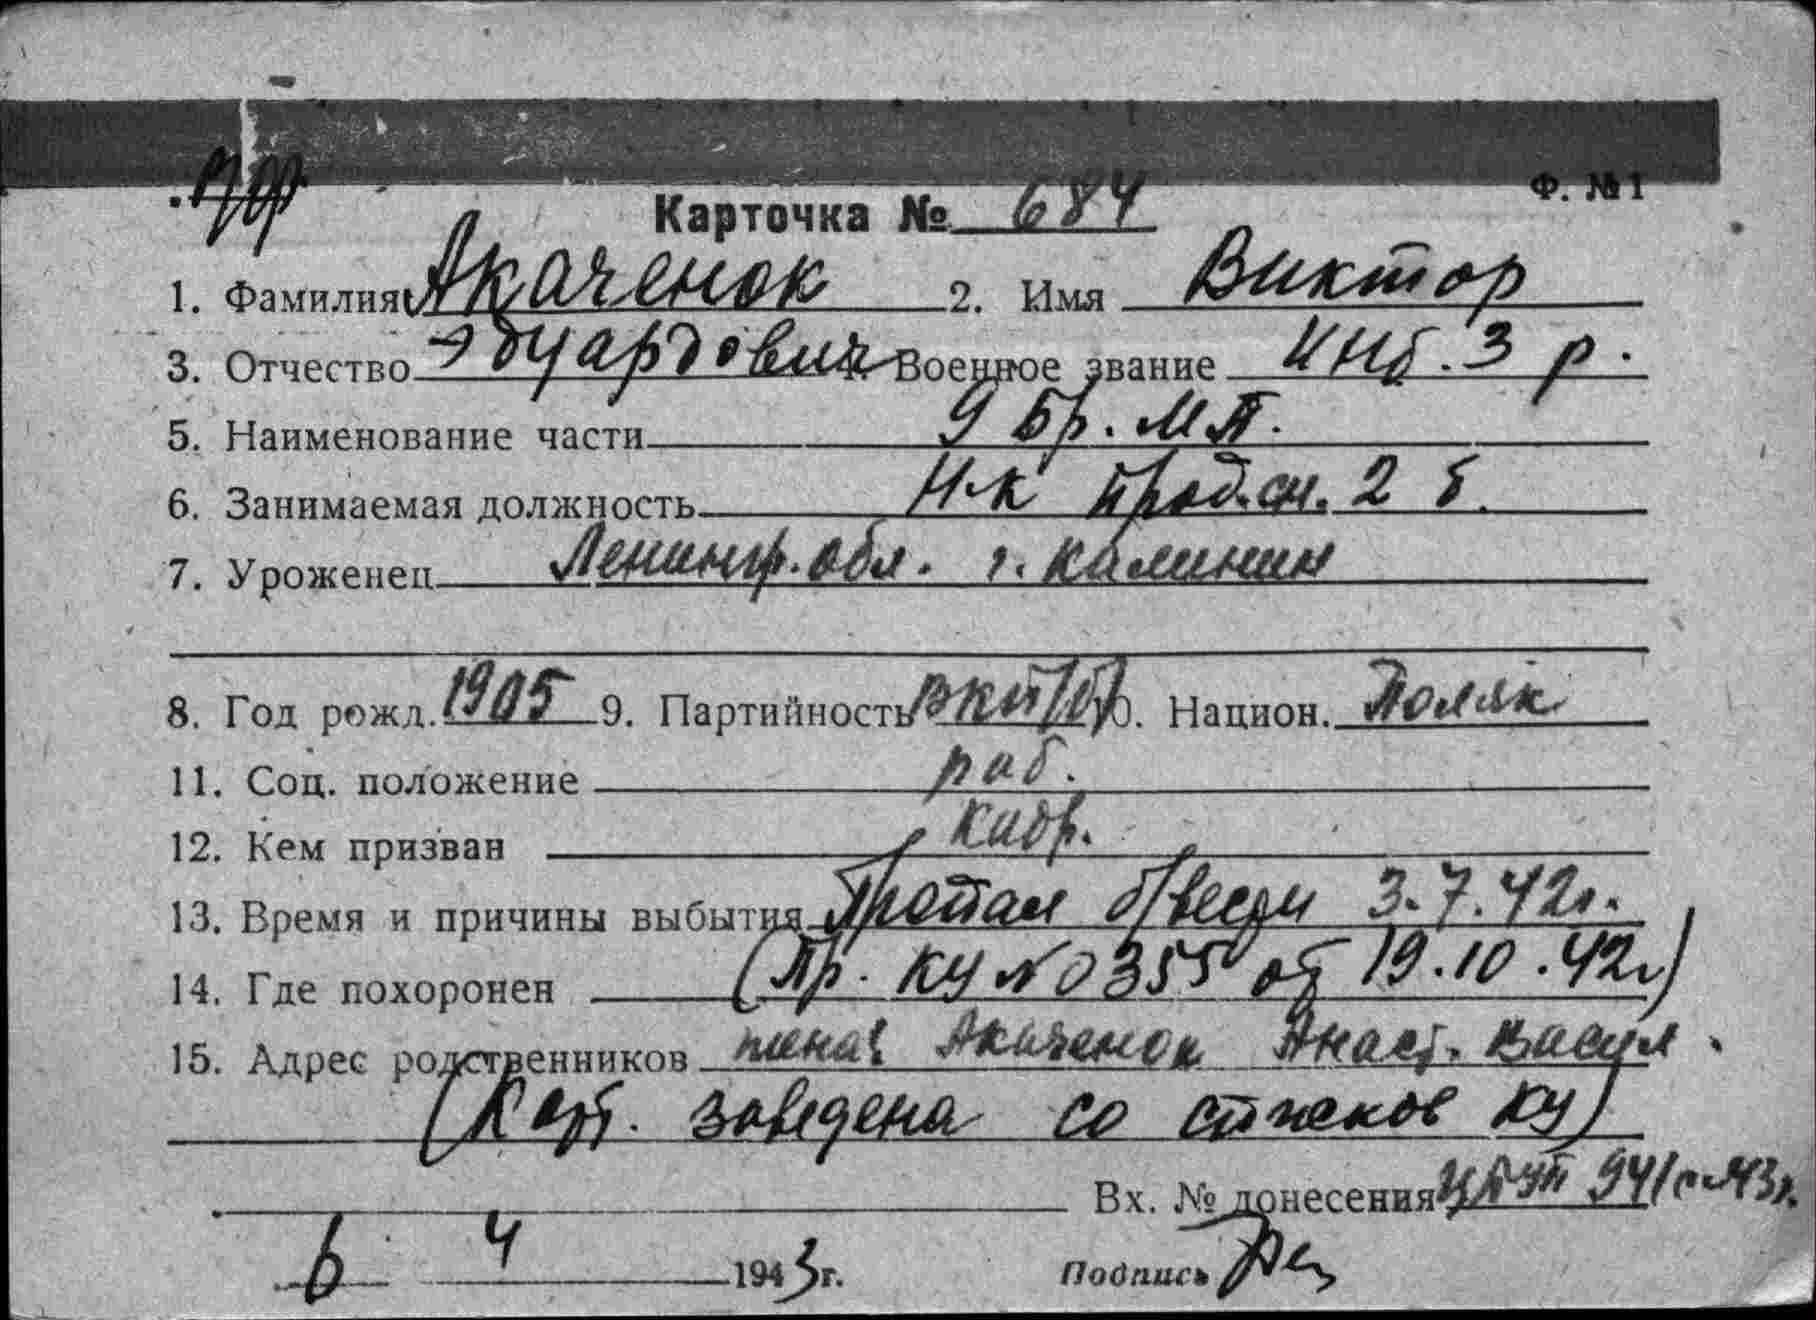 Ф. №1
Карточка № 684
1. Фамилия Акаченок 2. Имя Виктор
3. Отчество Эдуардович Военное звание инт. 3 р.
5. Наименование части 9 Бр. М.П.
6. Занимаемая должность Н-к прод. сн. 2 б.
7. Уроженец Ленингр. обл. г. Калинин
8. Год рожд. 1905 9. Партийность ВКП(б) 10. Национ. Поляк
11. Соц. положение раб.
12. Кем призван Кадр.
13. Время и причины выбытия Пропал б/вести 3.7.42г.
14. Где похоронен (Пр. КУ № 0355 от 19.10.42г)
15. Адрес родственников жена: Акаченок Анаст. Васил.
(Карт. заведена со списков КУ)
Вх. № донесения 941с-43г.
6 4 1943г. Подпись